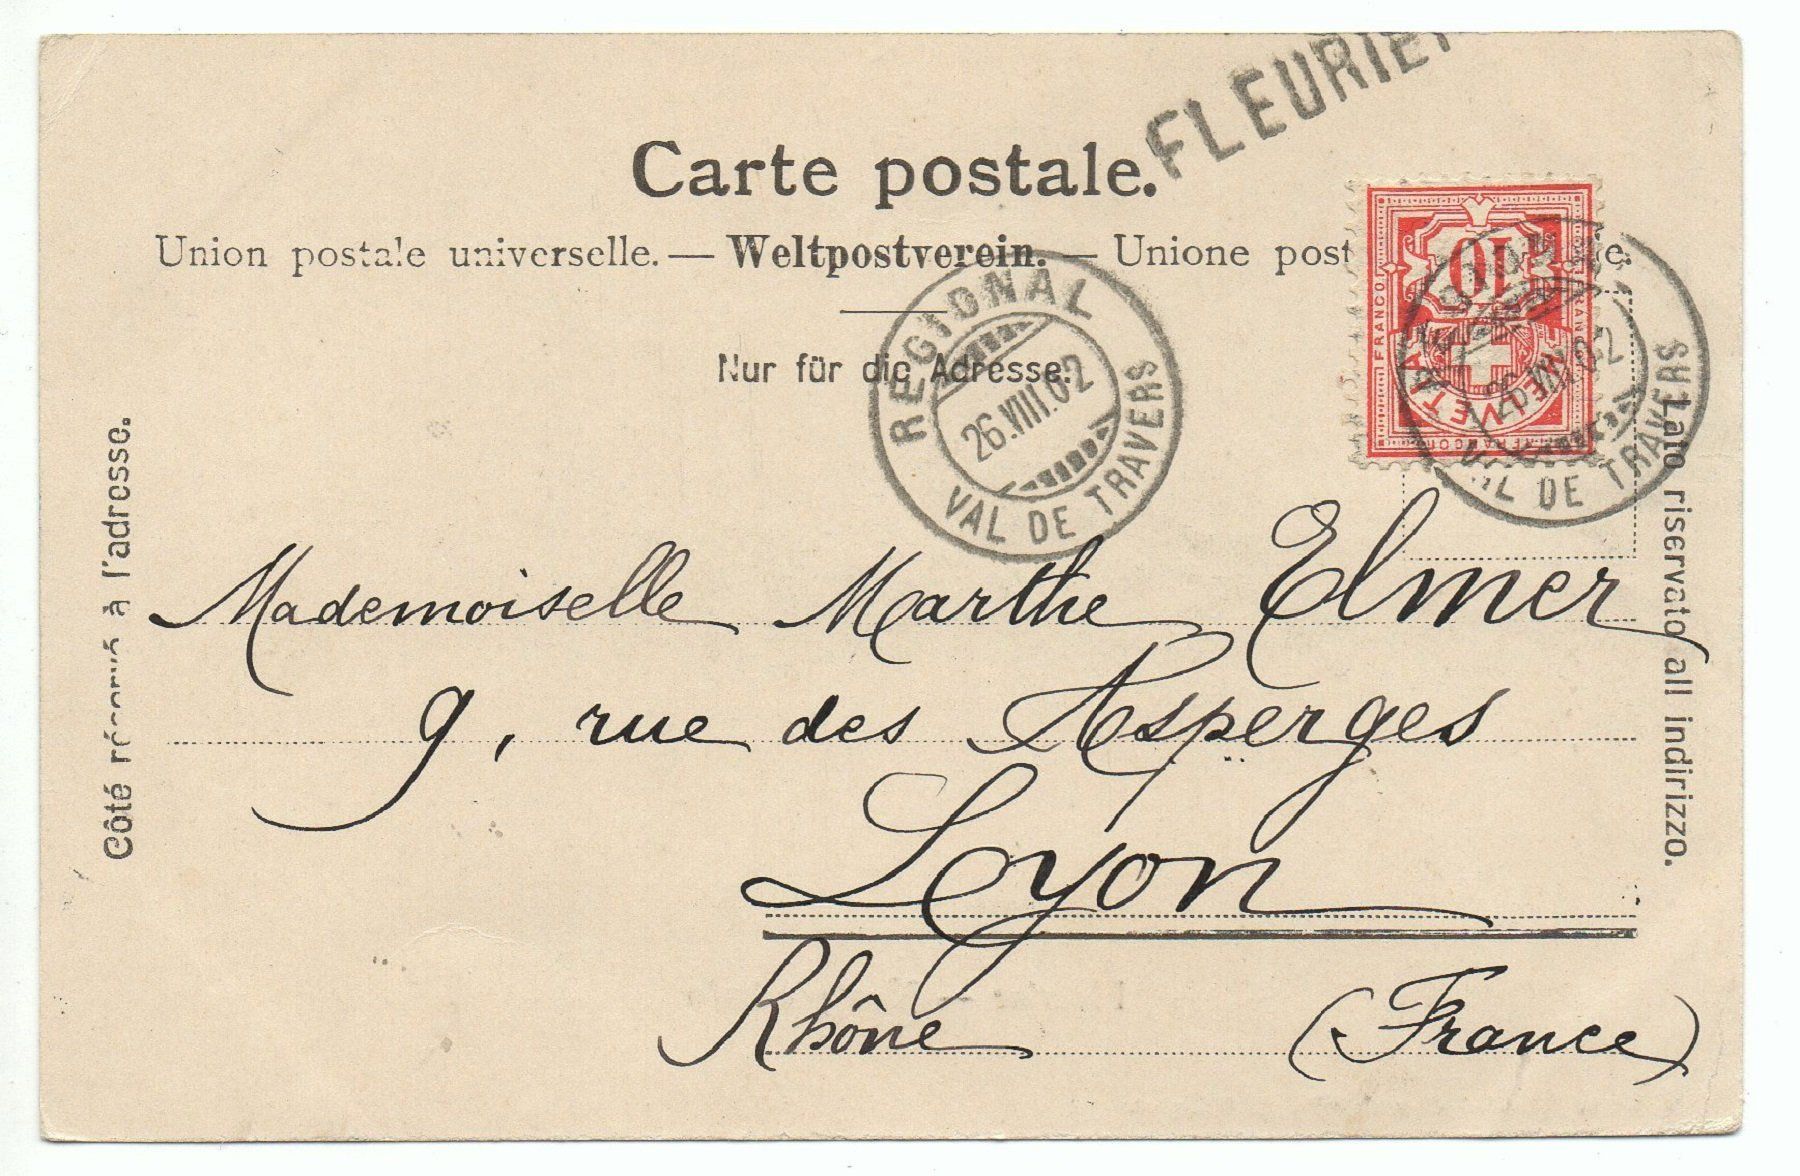 FLEURIE
Carte postale.
Union postale universelle. — Weltpostverein. — Unione post
Nur für die Adresse.
REGIONAL
26.VIII.02
VAL DE TRAVERS
10
FRANCO
HELVETIA
FRANCO
26.VIII.02
VAL DE TRAVERS
Côté réservé à l'adresse.
Lato riservato all indirizzo.
Mademoiselle Marthe Elmer
9, rue des Asperges
Lyon
Rhône (France)